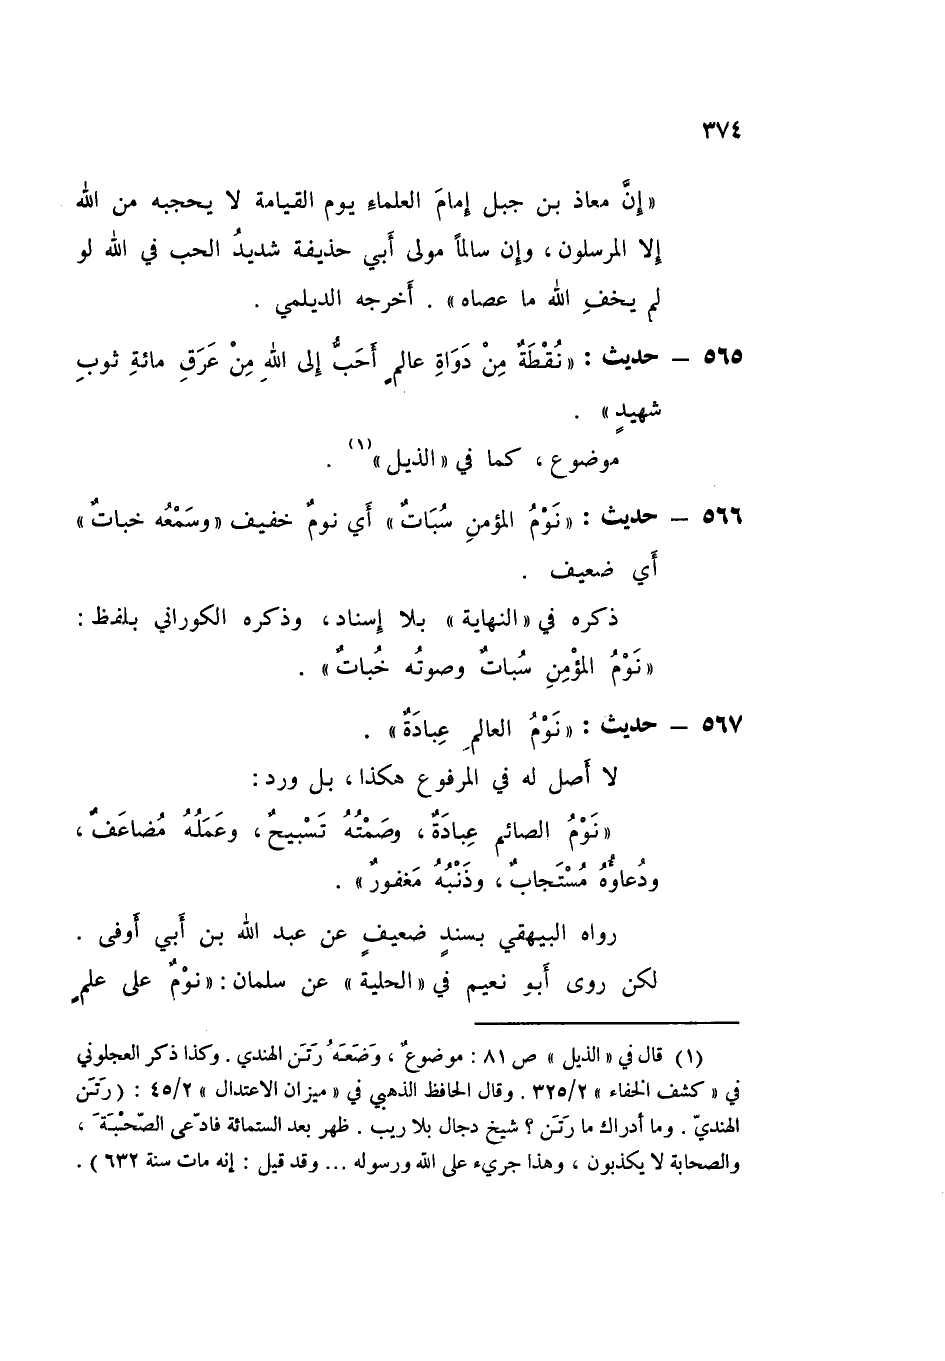 ٣٧٤
«إنَّ معاذ بن جبل إمامَ العلماءِ يوم القيامة لا يحجبه من الله
إلا المرسلون ، وإن سالماً مولى أبي حذيفة شديدُ الحب في الله لو
لم يخفِ الله ما عصاه» . أخرجه الديلمي .
٥٦٥ – حديث : «نُقْطَةٌ مِنْ دَوَاةِ عالمٍ أَحَبُّ إلى اللهِ مِنْ عَرَقِ مائةِ ثوبِ
شهيدٍ» .
موضوع ، كما في «الذيل»(١) .
٥٦٦ – حديث : «نَوْمُ المؤمنِ سُبَاتٌ» أي نومٌ خفيف «وسَمْعُه خباتٌ»
أي ضعيف .
ذكره في «النهاية» بلا إسناد ، وذكره الكوراني بلفظ :
«نَوْمُ المؤْمِنِ سُباتٌ وصوتُه خُباتٌ» .
٥٦٧ – حديث : «نَوْمُ العالمِ عِبادَةٌ» .
لا أَصل له في المرفوع هكذا ، بل ورد :
«نَوْمُ الصائم عِبادَةٌ ، وصَمْتُهُ تَسْبيحٌ ، وعَمَلُهُ مُضاعَفٌ ،
ودُعاؤُهُ مُسْتَجابٌ ، وذَنْبُهُ مَغفورٌ» .
رواه البيهقي بسندٍ ضعيفٍ عن عبد الله بن أبي أَوفى .
لكن روى أَبو نعيم في «الحلية» عن سلمان : «نومٌ على علمٍ
(١) قال في «الذيل» ص ٨١ : موضوعٌ ، وَضَعَهُ رَتَن الهندي . وكذا ذكر العجلوني
في «كشف الخفاء» ٣٢٥/٢ . وقال الحافظ الذهبي في «ميزان الاعتدال» ٤٥/٢ : (رَتَن
الهنديّ . وما أدراك ما رَتَن ؟ شيخ دجال بلا ريب . ظهر بعد الستمائة فادّعى الصّحْبَةَ ،
والصحابة لا يكذبون ، وهذا جريء على الله ورسوله ... وقد قيل : إنه مات سنة ٦٣٢) .